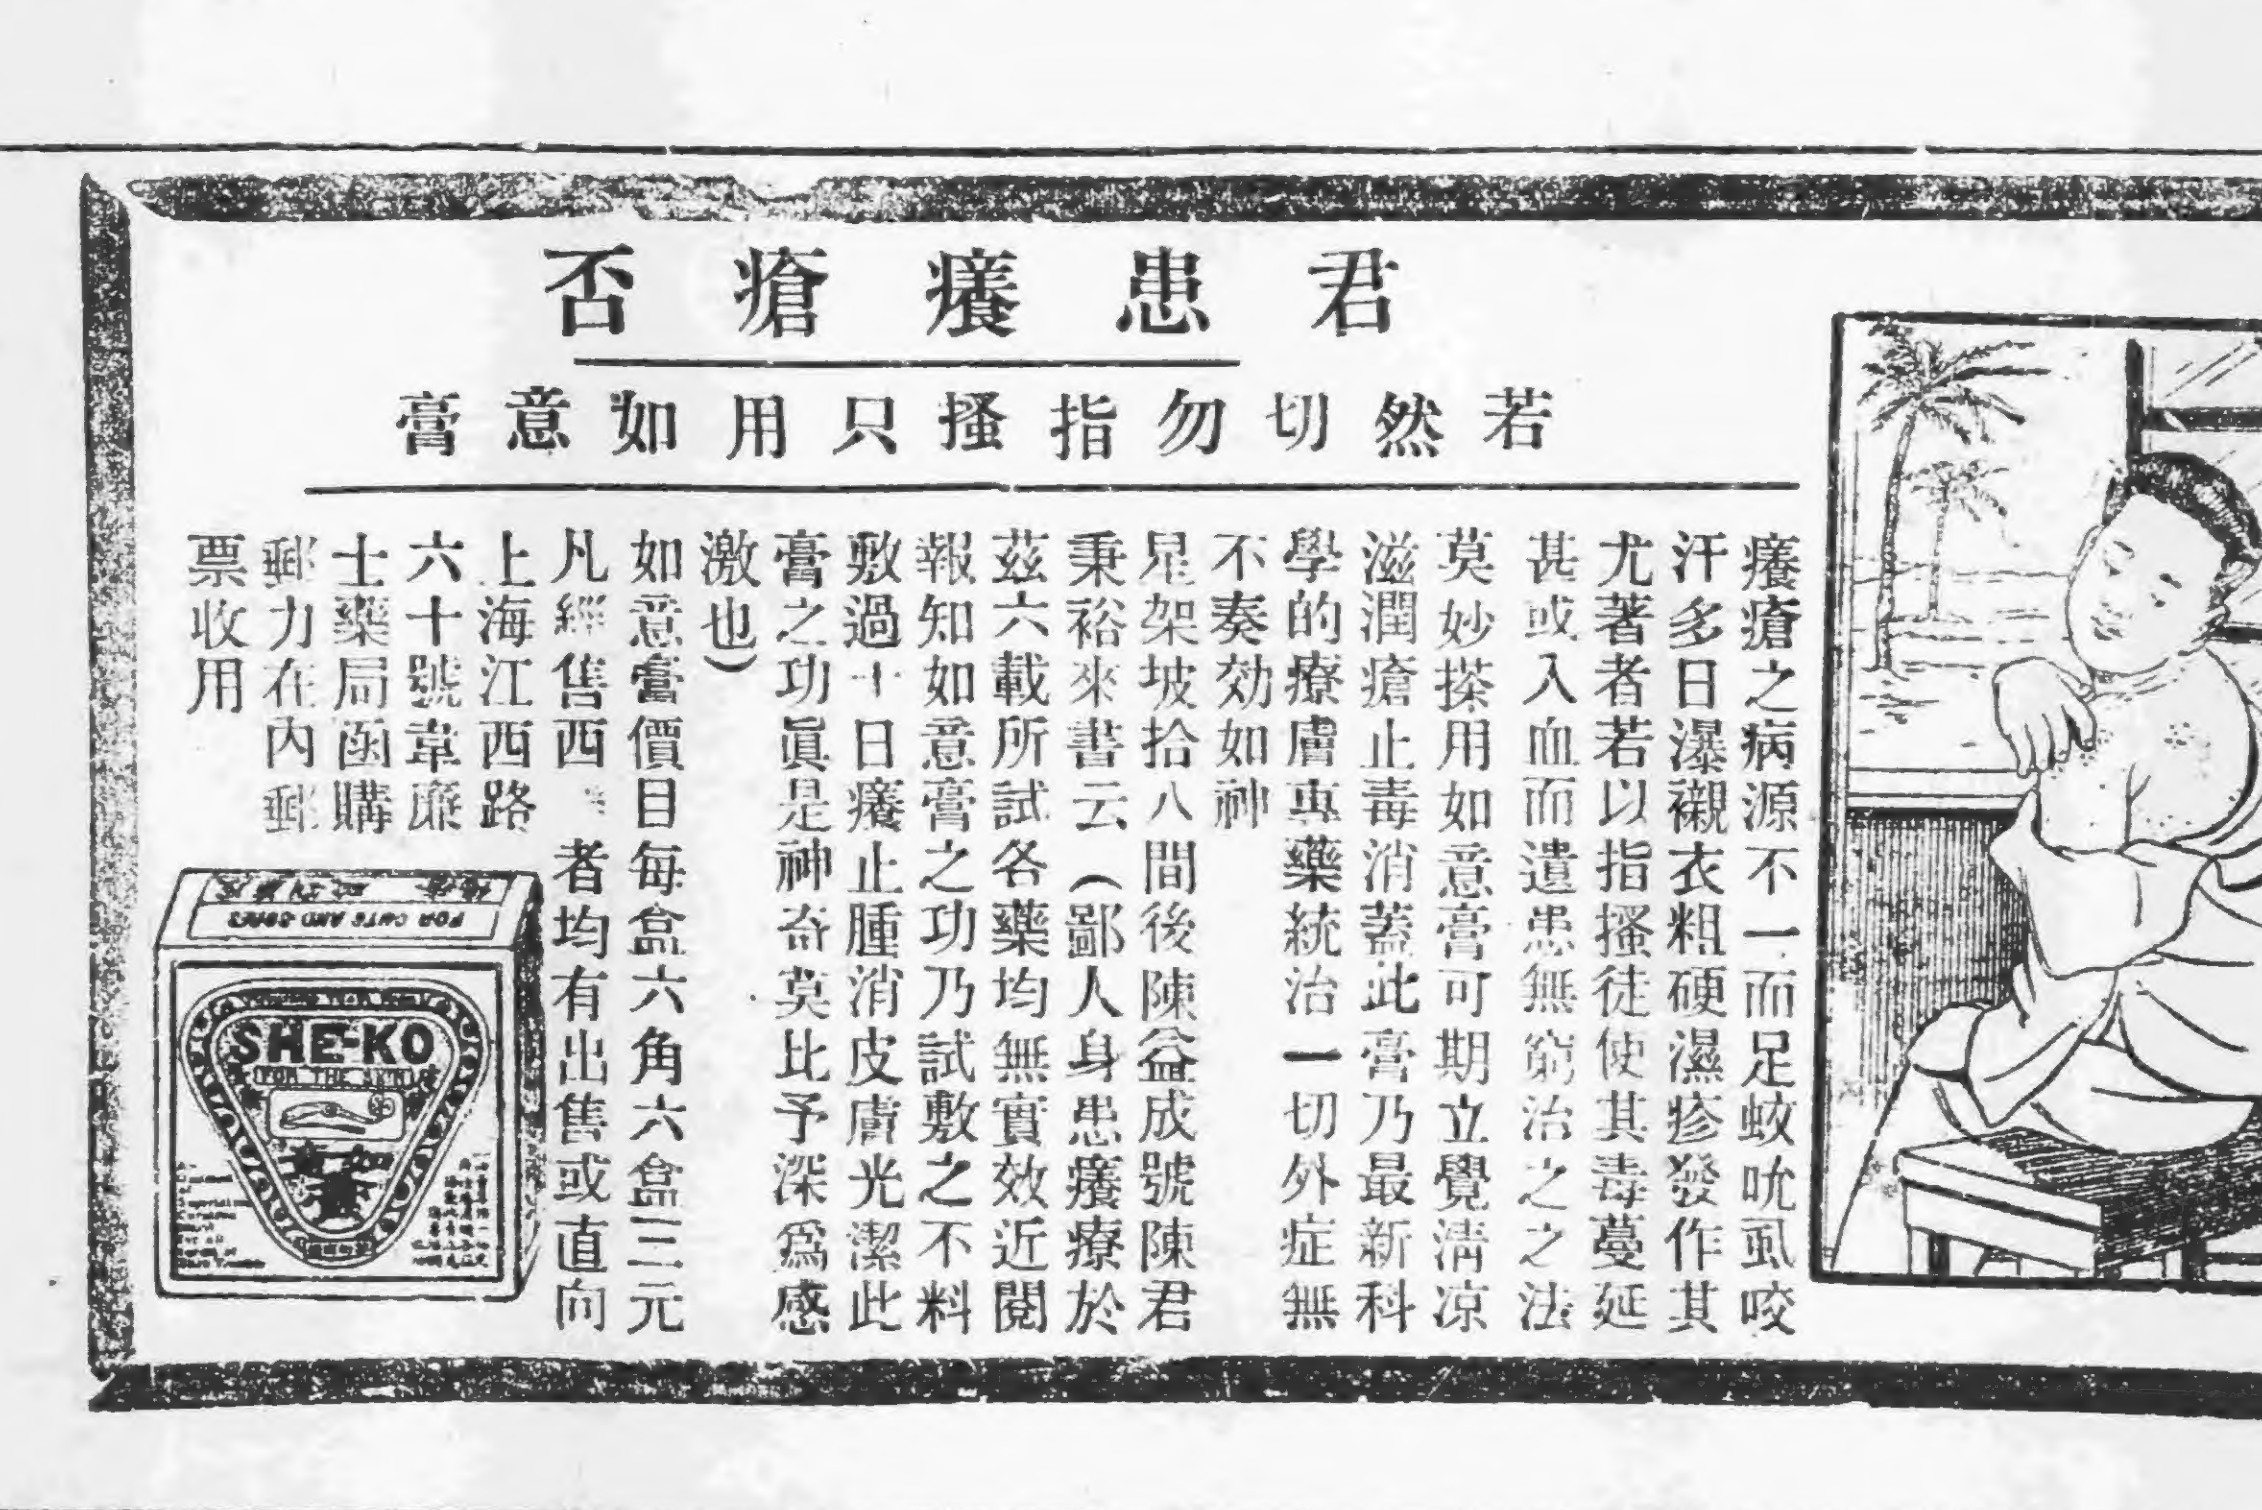 君患癢瘡否
若然切勿指搔只用如意膏
癢瘡之病源不一而足蚊吮虱咬
汗多日瀑襯衣粗硬濕疹發作其
尤著者若以指搔徒使其毒蔓延
甚或入血而遺患無窮治之之法
莫妙搽用如意膏可期立覺清凉
滋潤瘡止毒消蓋此膏乃最新科
學的療膚專藥統治一切外症無
不奏効如神
星架坡拾八間後陳益成號陳君
秉裕來書云（鄙人身患癢療於
茲六載所試各藥均無實效近閱
報知如意膏之功乃試敷之不料
敷過十日癢止腫消皮膚光潔此
膏之功眞是神奇莫比予深爲感
激也）
如意膏價目每盒六角六盒三元
凡經售西者均有出售或直向
上海江西路
六十號韋廉
士藥局函購
郵力在內郵
票收用
FOR CUTS AND SORES
SHE-KO
FOR THE SKIN
膏意如